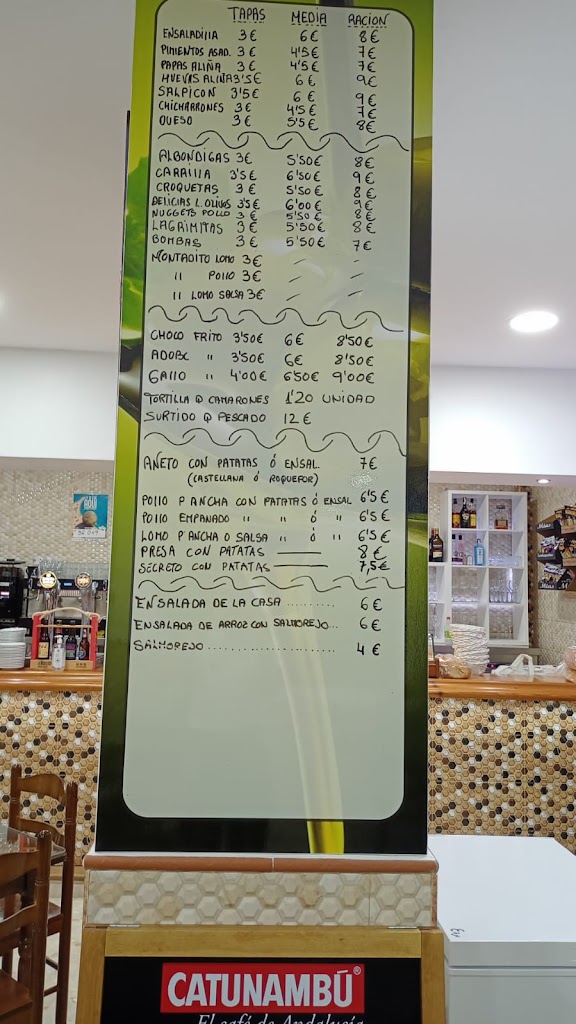 TAPAS MEDIA RACION
ENSALADILLA 3€ 6€ 8€
PIMIENTOS ASAD. 3€ 4'5€ 7€
PAPAS ALIÑA 3€ 4'5€ 7€
HUEVAS ALIÑA 3'5€ 6€ 9€
SALPICON 3'5€ 6€ 9€
CHICHARRONES 3€ 4'5€ 7€
QUESO 3€ 5'5€ 8€
ALBONDIGAS 3€ 5'50€ 8€
CARRILLA 3'5€ 6'50€ 9€
CROQUETAS 3€ 5'50€ 8€
DELICIAS L. OLIVOS 3'5€ 6'00€ 9€
NUGGETS POLLO 3€ 5'50€ 8€
LAGRIMITAS 3€ 5'50€ 8€
BOMBAS 3€ 5'50€ 7€
MONTADITO LOMO 3€ – –
" POLLO 3€ – –
" LOMO SALSA 3€ – –
CHOCO FRITO 3'50€ 6€ 8'50€
ADOBO " 3'50€ 6€ 8'50€
GALLO " 4'00€ 6'50€ 9'00€
TORTILLA D CAMARONES 1'20 UNIDAD
SURTIDO D PESCADO 12€
AÑETO CON PATATAS Ó ENSAL 7€
(CASTELLANA Ó ROQUEFOR)
POLLO P'ANCHA CON PATATAS Ó ENSAL 6'5€
POLLO EMPANADO " " Ó " 6'5€
LOMO P'ANCHA O SALSA " Ó " 6'5€
PRESA CON PATATAS — 8€
SECRETO CON PATATAS — 7,5€
ENSALADA DE LA CASA ......... 6€
ENSALADA DE ARROZ CON SALMOREJO... 6€
SALMOREJO ...................... 4€
CATUNAMBÚ®
El café de Andalucía